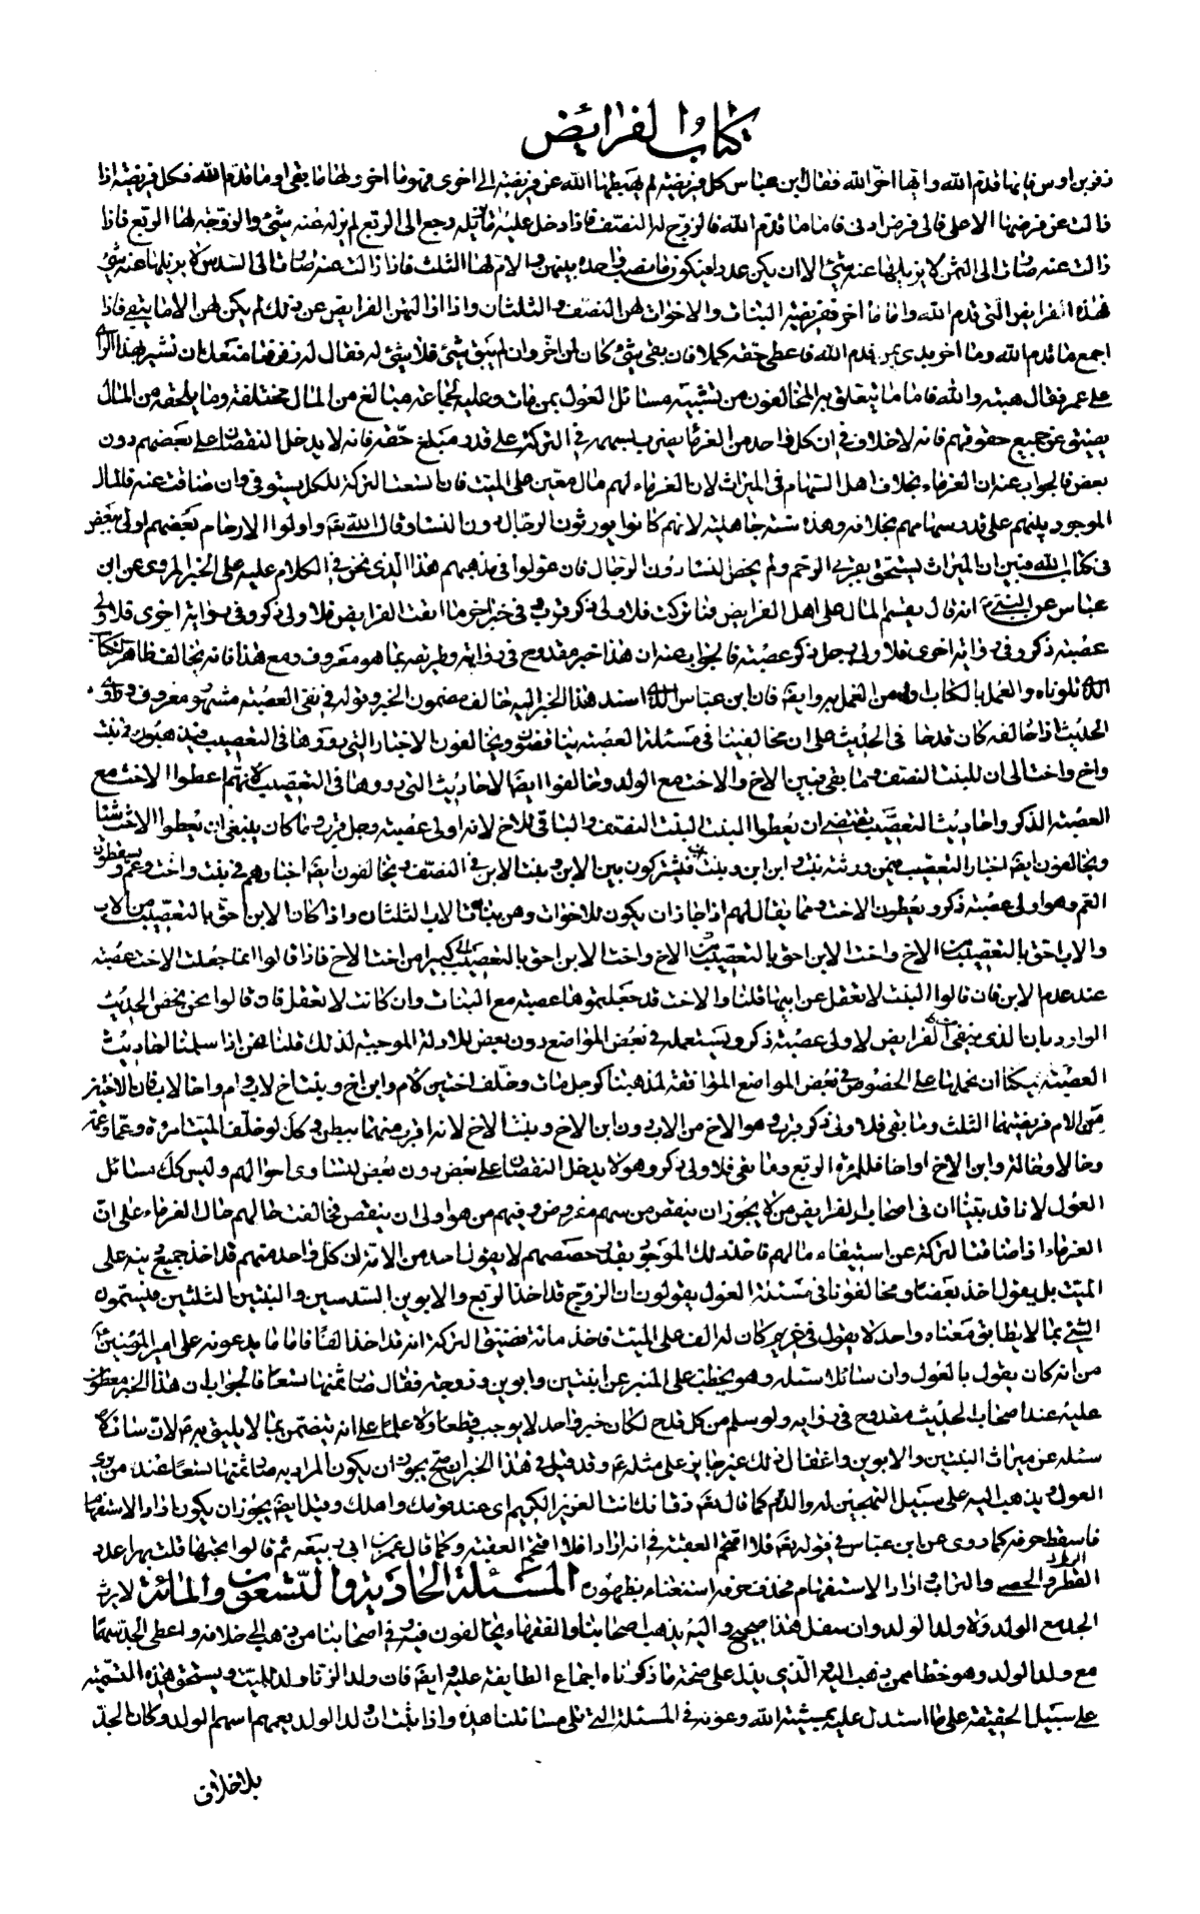 كتاب الفرايض
زفر بن اوس فايها قدم الله وايها اخر الله فقال ابن عباس كل فريضة لم يهبطها الله عن فريضة الى اخرى فهو ما اخر ولها ما بقى او ما قدم الله فكل فريضة اذا
زالت عن فرضها الاعلى فالى فرض ادنى فاما ما قدم الله فالزوج له النصف فاذا دخل عليه ما يزيله رجع الى الربع لم يزله عنه شئ والزوجة لها الربع فاذا
زالت عنه صارت الى الثمن لا يزيلها عنه شئ الا ان يكن عددا فيكون نصيب واحدة بينهن والام لها الثلث فاذا زالت عنه صارت الى السدس لا يزيلها عنه شئ
فهذه الفرايض التي قدم الله واما ما اخر ففريضة البنات والاخوات لهن النصف والثلثان واذا ازالتهن الفرايض عن ذلك لم يكن لهن الا ما يبقى فاذا
اجمع ما قدم الله وما اخر بدئ بمن قدم الله فاعطى حقه كملا فان بقى شئ كان لمن اخر وان لم يبق شئ فلا شئ له فقال له زفر فما منعك ان تشير بهذا الراى
على عمر فقال هبته والله فاما ما يتعلق به المخالفون من تشبيه مسائل العول بمن مات وعليه لجماعة مبالغ من المال مختلفة وما يلحقه من المال
يضيق عن جميع حقوقهم فانه لا خلاف في ان كل واحد من الغرماء يضرب بسهمه في التركة على قدر مبلغ حقه فانه لا يدخل النقصان على بعضهم دون
بعض فالجواب عنه ان الغرماء بخلاف اهل السهام في الميراث لان الغرماء لهم مال معين على الميت فان اتسعت التركة للكل يستوفى وان ضاقت عنه فالمال
الموجود بينهم على قدر سهامهم بخلافه وهذه سنة جاهلية لانهم كانوا يورثون الرجال دون النساء وقال الله تعالى واولوا الارحام بعضهم اولى ببعض
في كتاب الله فبين ان الميراث يستحق بقربى الرحم ولم يخص النساء دون الرجال فان عولوا في مذهبهم هذا الذي نحن في الكلام عليه على الخبر المروي عن ابن
عباس عن النبي ص انه قال يقسم المال على اهل الفرايض فما تركت فلاولى ذكر قرب وفي خبر اخر ما ابقت الفرايض فلاولى ذكر وفي رواية اخرى فلاولى
عصبة ذكر وفي رواية اخرى فلاولى رجل ذكر عصبة فالجواب عنه ان هذا خبر مقدوح في رواته وطريقه بما هو معروف ومع هذا فانه يخالف ظاهر الكتاب
الذي تلوناه والعمل بالكتاب اولى من العمل به وايضا فان ابن عباس الذي اسند هذا الخبر اليه خالف مضمون الخبر وقوله في نفى العصبة مشهور معروف وراوي
الحديث اذا خالفه كان قدحا في الحديث على ان مخالفينا في مسئلة العصبة يناقضون ويخالفون الاخبار التي يروونها في التعصيب فيذهبون في بنت
واخ واخت الى ان للبنت النصف وما بقى فبين الاخ والاخت مع الولد وخالفوا ايضا الاحاديث التي رووها في التعصيب لانهم اعطوا الاخت مع
العصبة الذكر واحاديث التعصيب تقتضى ان يعطوا البنت للبنت النصف والباقى للاخ لانه اولى عصبة وجل قرب وما كان ينبغى ان يعطوا الاخت شيئا
ويخالفون ايضا اخبار التعصيب فيمن ورثته بنت وابن ابن وبنت ابن فيشتركون بين الابن وبنت الابن في النصف ويخالفون ايضا اخبارهم في بنت واخت وعم ويسقطون
العم وهو اولى عصبة ذكر ويعطون الاخت وما يقال لهم اذا جاز ان يكون للاخوات وهن بنات الاب الثلثان واذا كان الابن احق بالتعصيب من الاب
والاب احق بالتعصيب من الاخ واخت الابن احق بالتعصيب من الاخ واخت الابن احق بالتعصيب كثيرا من اخت الاخ فاذا قالوا انما جعلت الاخت عصبة
عند عدم الابن فان قالوا البنت لا تعقل عن ابيها قلنا والاخت قد جعلتموها عصبة مع البنات وان كانت لا تعقل فان قالوا نحن نخص الحديث
الوارد بان الذي يبقى من الفرايض لاولى عصبة ذكر ونستعمله في بعض المواضع دون بعض للادلة الموجبة لذلك قلنا لهم اذا سلمنا احاديث
العصبة يمكننا ان نحملها على الخصوص في بعض المواضع الموافقة لمذهبنا كرجل مات وخلف اختين لام وابن اخ وبنت اخ لاب وام واخا لاب فان الاختين
من الام فريضتهما الثلث وما بقى فلاولى ذكر قرب وهو الاخ من الاب دون ابن الاخ وبنت الاخ لانه اقرب منهما ببطن وكل لو خلف الميت امرءة وعما وعمة
وخالا وخالة وابن الاخ او اخا فللمرءة الربع وما بقى فلاولى ذكر وهو لا يدخل النقصان على بعض دون بعض لتساوى احوالهم وليس كك مسائل
العول لانا قد بينا ان في اصحاب الفرايض من لا يجوز ان ينقص من سهم مفروض وفيهم من هو اولى ان ينقص فخالفت حالهم حال الغرماء على ان
الغرماء اذا ضاقت التركة عن استيفاء مالهم فاخذ ذلك الموجود بقدر حصصهم لا يقول احد من الامة ان كل واحد منهم قد اخذ جميع دينه على
الميت بل يقول اخذ بعضه ومخالفونا في مسئلة العول يقولون ان الزوج قد اخذ الربع والابوين السدسين والبنتين الثلثين فيسمون
الشئ بما لا يطابق معناه واحد لا يقول في غريم كان له الف على الميت فاخذ مائة لضيق التركة انه قد اخذ الفا فاما ما يدعونه على امير المؤمنين ع
من انه كان يقول بالعول وان سائلا سئله وهو يخطب على المنبر عن ابنتين وابوين وزوجة فقال صار ثمنها تسعا فالجواب ان هذا الخبر مطعون
عليه عند اصحاب الحديث مقدوح في رواته ولو سلم من كل قدح لكان خبر واحد لا يوجب قطعا ولا علما على انه يتضمن بما لا يليق به لان سائلا
سئله عن ميراث البنتين والابوين واغفال ذلك غير جائز على مثله وقد قيل في هذا الخبر ان صح يجوز ان يكون المراد به صار ثمنها تسعا عند من يرى
العول ويذهب اليه على سبيل التهجين له والذم كما قال تعالى ذق انك انت العزيز الكريم اى عند قومك واهلك وقيل ايضا يجوز ان يكون اراد الاستفهام
فاسقط حرفه كما روى عن ابن عباس في قوله تعالى فلا اقتحم العقبة في انه اراد افلا اقتحم العقبة وكما قال عمر بن ابى ربيعة ثم قالوا تحبها قلت بهرا عدد
القطر والحصى والتراب اراد الاستفهام فحذف حرفه استغناء بظهوره المسئلة الحادية والتسعون والمائة لا يرث
الجد مع الولد ولا ولد الولد وان سفل هذا صحيح واليه يذهب اصحابنا والفقهاء يخالفون فيه وفي اصحابنا من ذهب الى خلافه واعطى الجد سهما
مع ولد الولد وهو خطا ممن ذهب اليه والذي يدل على صحة ما ذكرناه اجماع الطايفة عليه وايضا فان ولد الزنا ولد للميت ويستحق هذه التسمية
على سبيل الحقيقة على ما استدل عليه بمشيئة الله وعونه في المسئلة التي تلي مسائلنا هذه واذا ثبت ان ولد الولد يعمهم اسهم الولد وكان الجد
بلا خلاف